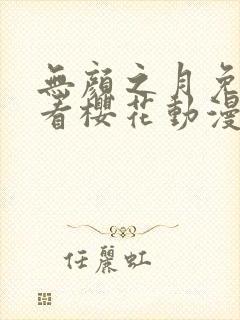 無顏之月免
看櫻花動漫
任麗虹